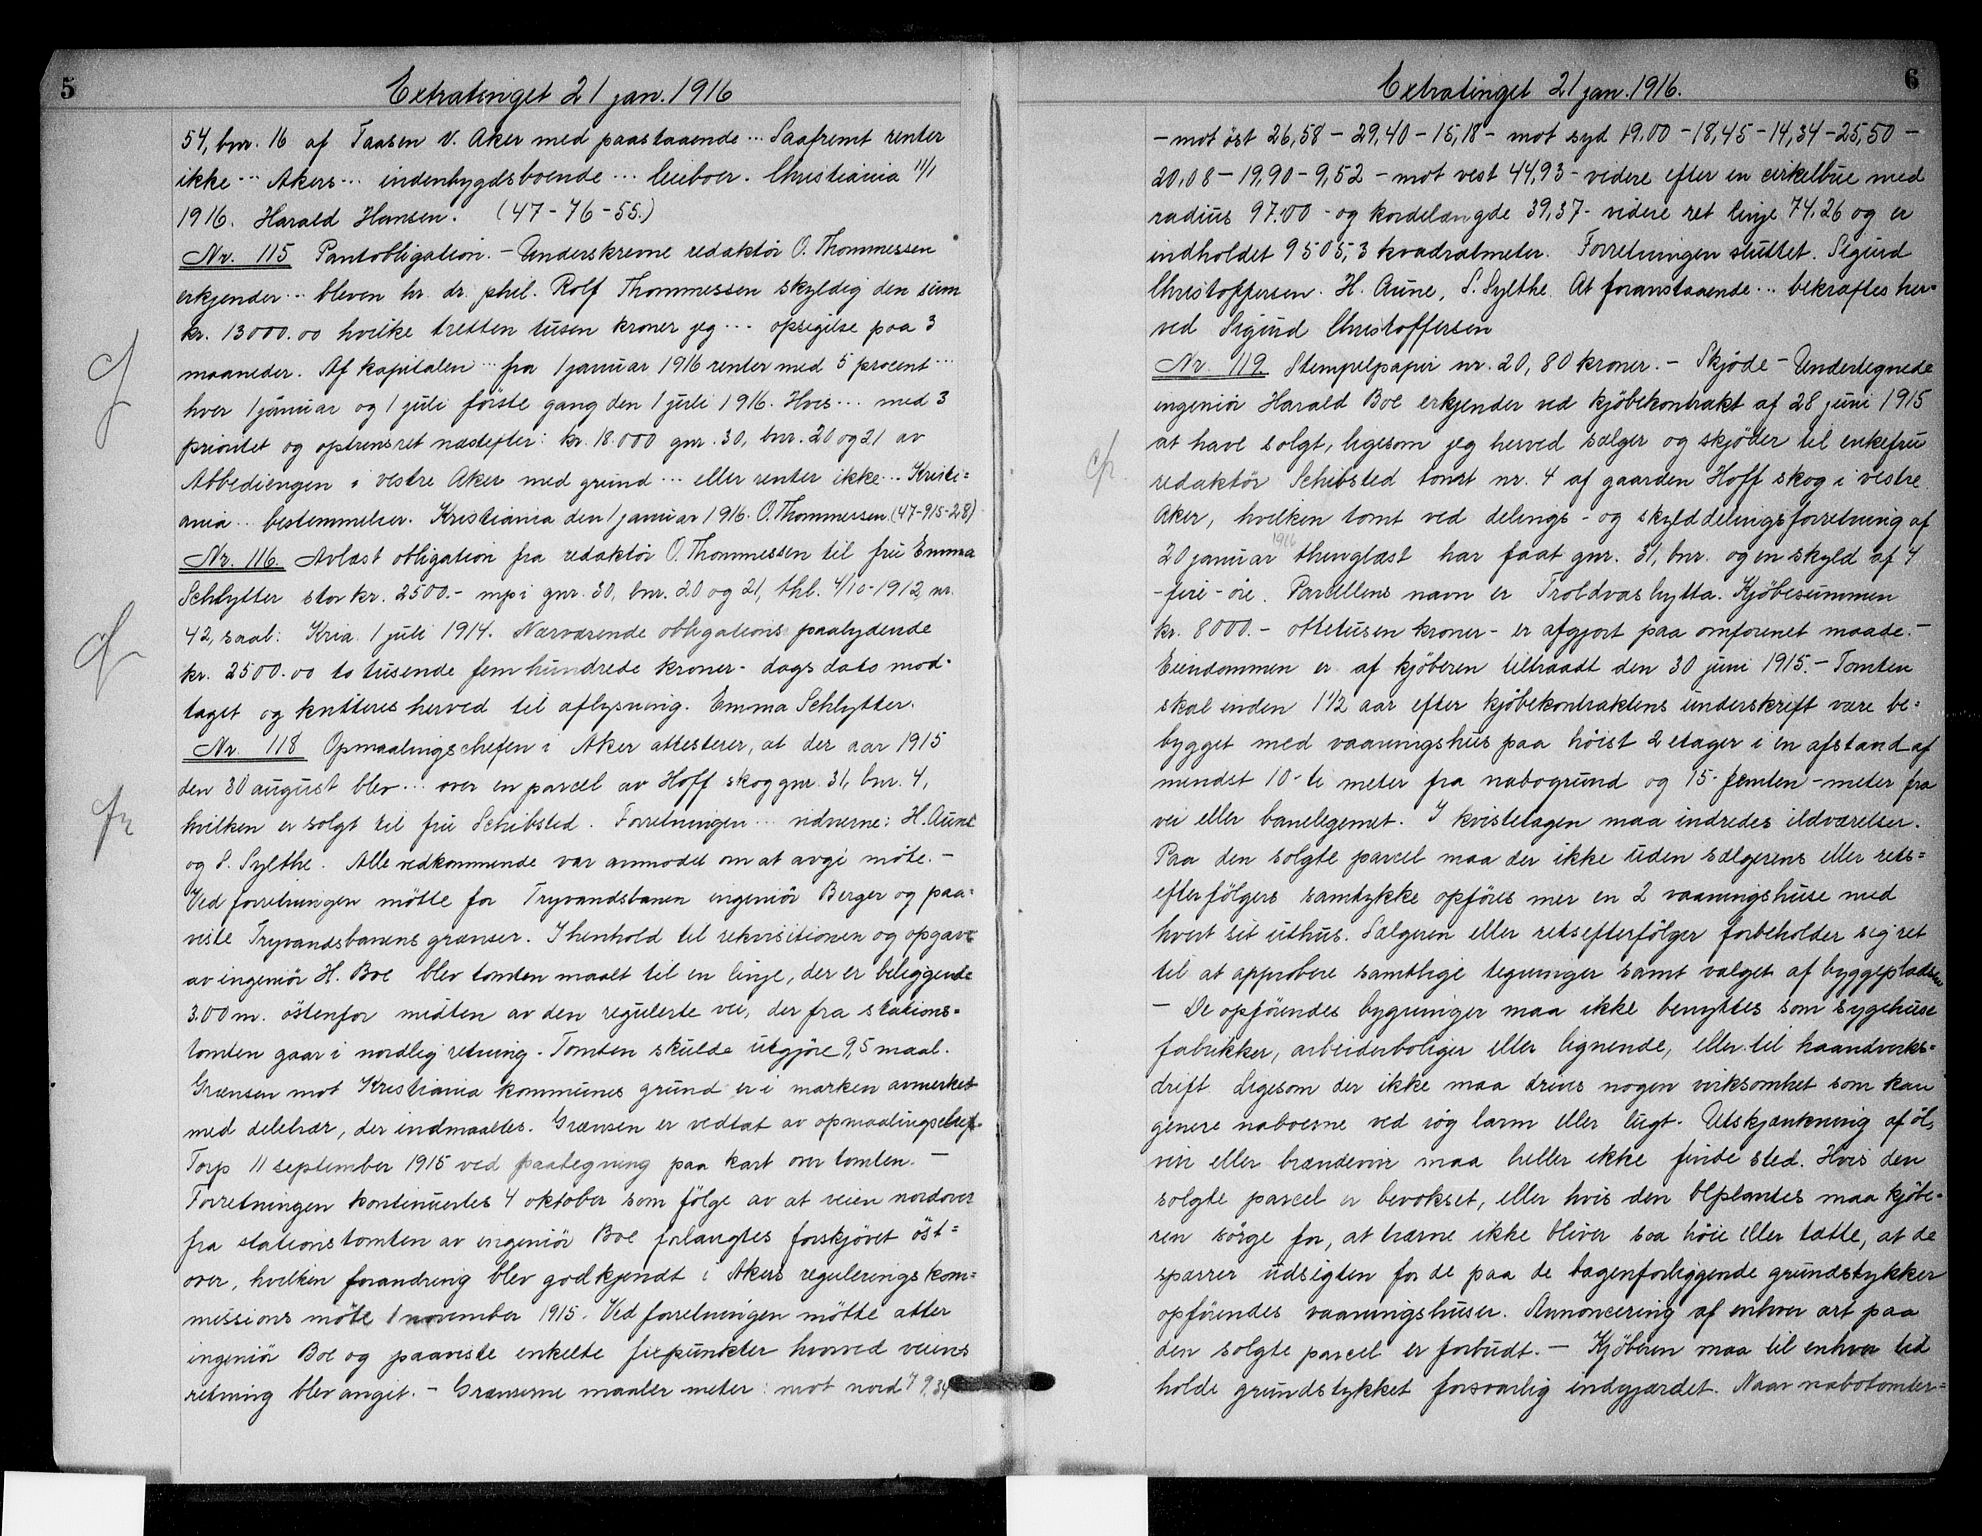 5
Extratinget 21 jan. 1916
54, bnr. 16 af Taasen V. Aker med paastaaende ... Saafremt renter
ikke ... Akers ... indenbygdsboende ... Christiania 11/1
1916. Harald Hansen. (47-76-55.)
Nr. 115 Pantobligation. - Underskrevne redaktör O. Thommessen
erkjender ... bleven hr. dr. phil. Rolf Thommessen skyldig den sum
kr. 13000.00 hvilke tretten tusen kroner jeg ... opsigelse paa 3
maaneder. Af kapitalen ... fra 1 januar 1916 renter med 5 procent ...
hver 1 januar og 1 juli förste gang den 1 juli 1916. Hvis ... med 3
prioritet og optrinsret næstefter: kr. 18.000 gnr. 30, bnr. 20 og 21 av
Abbediengen i vestre Aker med grund ... eller renter ikke ... Kristi=
ania ... bestemmelser. Kristiania den 1 januar 1916. O. Thommessen (47-915-28)
Nr. 116. Avlæst obligation fra redaktör O. Thommessen til fru Emma
Schlytter stor kr. 2500.- mpi gnr. 30, bnr. 20 og 21, thl. 4/10-1912, nr.
42, saal: Kria. 1 juli 1914. Nærværende obligations paalydende
kr. 2500.00 to tusende fem hundrede kroner - dags dato mod=
taget og kvitteres herved til aflysning. Emma Schlytter.
Nr. 118 Opmaalingschefen i Aker attesterer, at der aar 1915
den 30 august blev ... over en parcel av Hoff skog gnr. 31, bnr. 4,
hvilken er solgt til fru Schibsted. Forretningen ... vidnerne: H. Aune
og S. Sylthe. Alle vedkommende var anmodet om at avgi möte. -
Ved forretningen mötte for Tryvandsbanen ingeniör Berger og paa=
viste Tryvandsbanens grænser. I henhold til rekvisitionen og opgave
av ingeniör H. Boe blev tomten maalt til en linje, der er beliggende
3.00 m. östenfor midten av den regulerte vei, der fra stations=
tomten gaar i nordlig retning. Tomten skulde utgjöre 9,5 maal.
Grænsen mot Kristiania kommunes grund er i marken avmerket
med deletrær, der indmaaltes. Grænsen er vedtat av opmaalingschef
Torp 11 september 1915 ved paategning paa kart over tomten. -
Forretningen kontinuertes 4 oktober som fölge av at veien nordover
fra stationstomten av ingeniör Boe forlangtes forskjövet öst=
over, hvilken forandring blev godkjendt i Akers regulerings kom=
missions möte 1 november 1915. Ved forretningen mötte atter
ingeniör Boe og paaviste enkelte fixpunkter hvorved veiens
retning blev angit. - Grænserne maaler meter: mot nord 79,34
6
Extratinget 21 jan. 1916.
- mot öst 26,58 - 29,40 - 15,18 - mot syd 19.00 - 18,45 - 14,34 - 25,50 -
20,08 - 19,90 - 9,52 - mot vest 44,93 - videre efter en cirkelbue med
radius 97.00 - og kordelængde 39,37 - videre ret linje 74.26 og er
indholdet 9505,3 kvadratmeter. Forretningen sluttet. Sigurd
Christoffersen. H. Aune, S. Sylthe. At foranstaaende ... bekræftes her=
ved Sigurd Christoffersen
Nr. 119. Stempelpapir nr. 20, 80 kroner. - Skjöde - Undertegnede
ingeniör Harald Boe erkjender ved kjöbekontrakt af 28 juni 1915
at have solgt, ligesom jeg herved sælger og skjöder til enkefru
redaktör Schibsted tomt nr. 4 af gaarden Hoff skog i vestre
Aker, hvilken tomt ved delings- og skylddelingsforretning af
1916
20 januar thinglæst har faat gnr. 31, bnr. og en skyld af 4
- fire - öre. Parcellens navn er Troldvashytta. Kjöbesummen
kr. 8000.- ottetusen kroner - er afgjort paa omforenet maade. -
Eiendommen er af kjöberen tiltraadt den 30 juni 1915. - Tomten
skal inden 1 1/2 aar efter kjöbekontraktens underskrift være be=
bygget med vaaningshus paa höist 2 etager i en afstand af
mindst 10 - ti meter fra nabogrund og 15 - femten - meter fra
vei eller banelegemet. I kvistetagen maa indredes ildværelser.
Paa den solgte parcel maa der ikke uden sælgerens eller rets=
efterfölgers samtykke opföres mer en 2 vaaningshuse med
hvert sit uthus. Sælgeren eller retsefterfölger forbeholder sig ret
til at approbere samtlige tegninger samt valget af byggepladsen
- De opförendes bygninger maa ikke benyttes som sygehuse
fabrikker, arbeiderboliger eller lignende, eller til haandverks=
drift ligesom der ikke maa drives nogen virksomhet som kan
genere naboerne ved rög larm eller lugt. Utskjænkning af öl,
vin eller brændevin maa heller ikke finde sted. Hvis den
solgte parcel er bevokset, eller hvis den beplantes maa kjöbe=
ren sörge for, at trærne ikke bliver saa höie eller tætte, at de
spærrer udsigten for de paa de bagenforliggende grundstykker
opförendes vaaningshuser. Annoncering af enhver art paa
den solgte parcel er forbudt. - Kjöberen maa til enhver tid
holde grundstykket forsvarlig indgjærdet. Naar nabotomter=